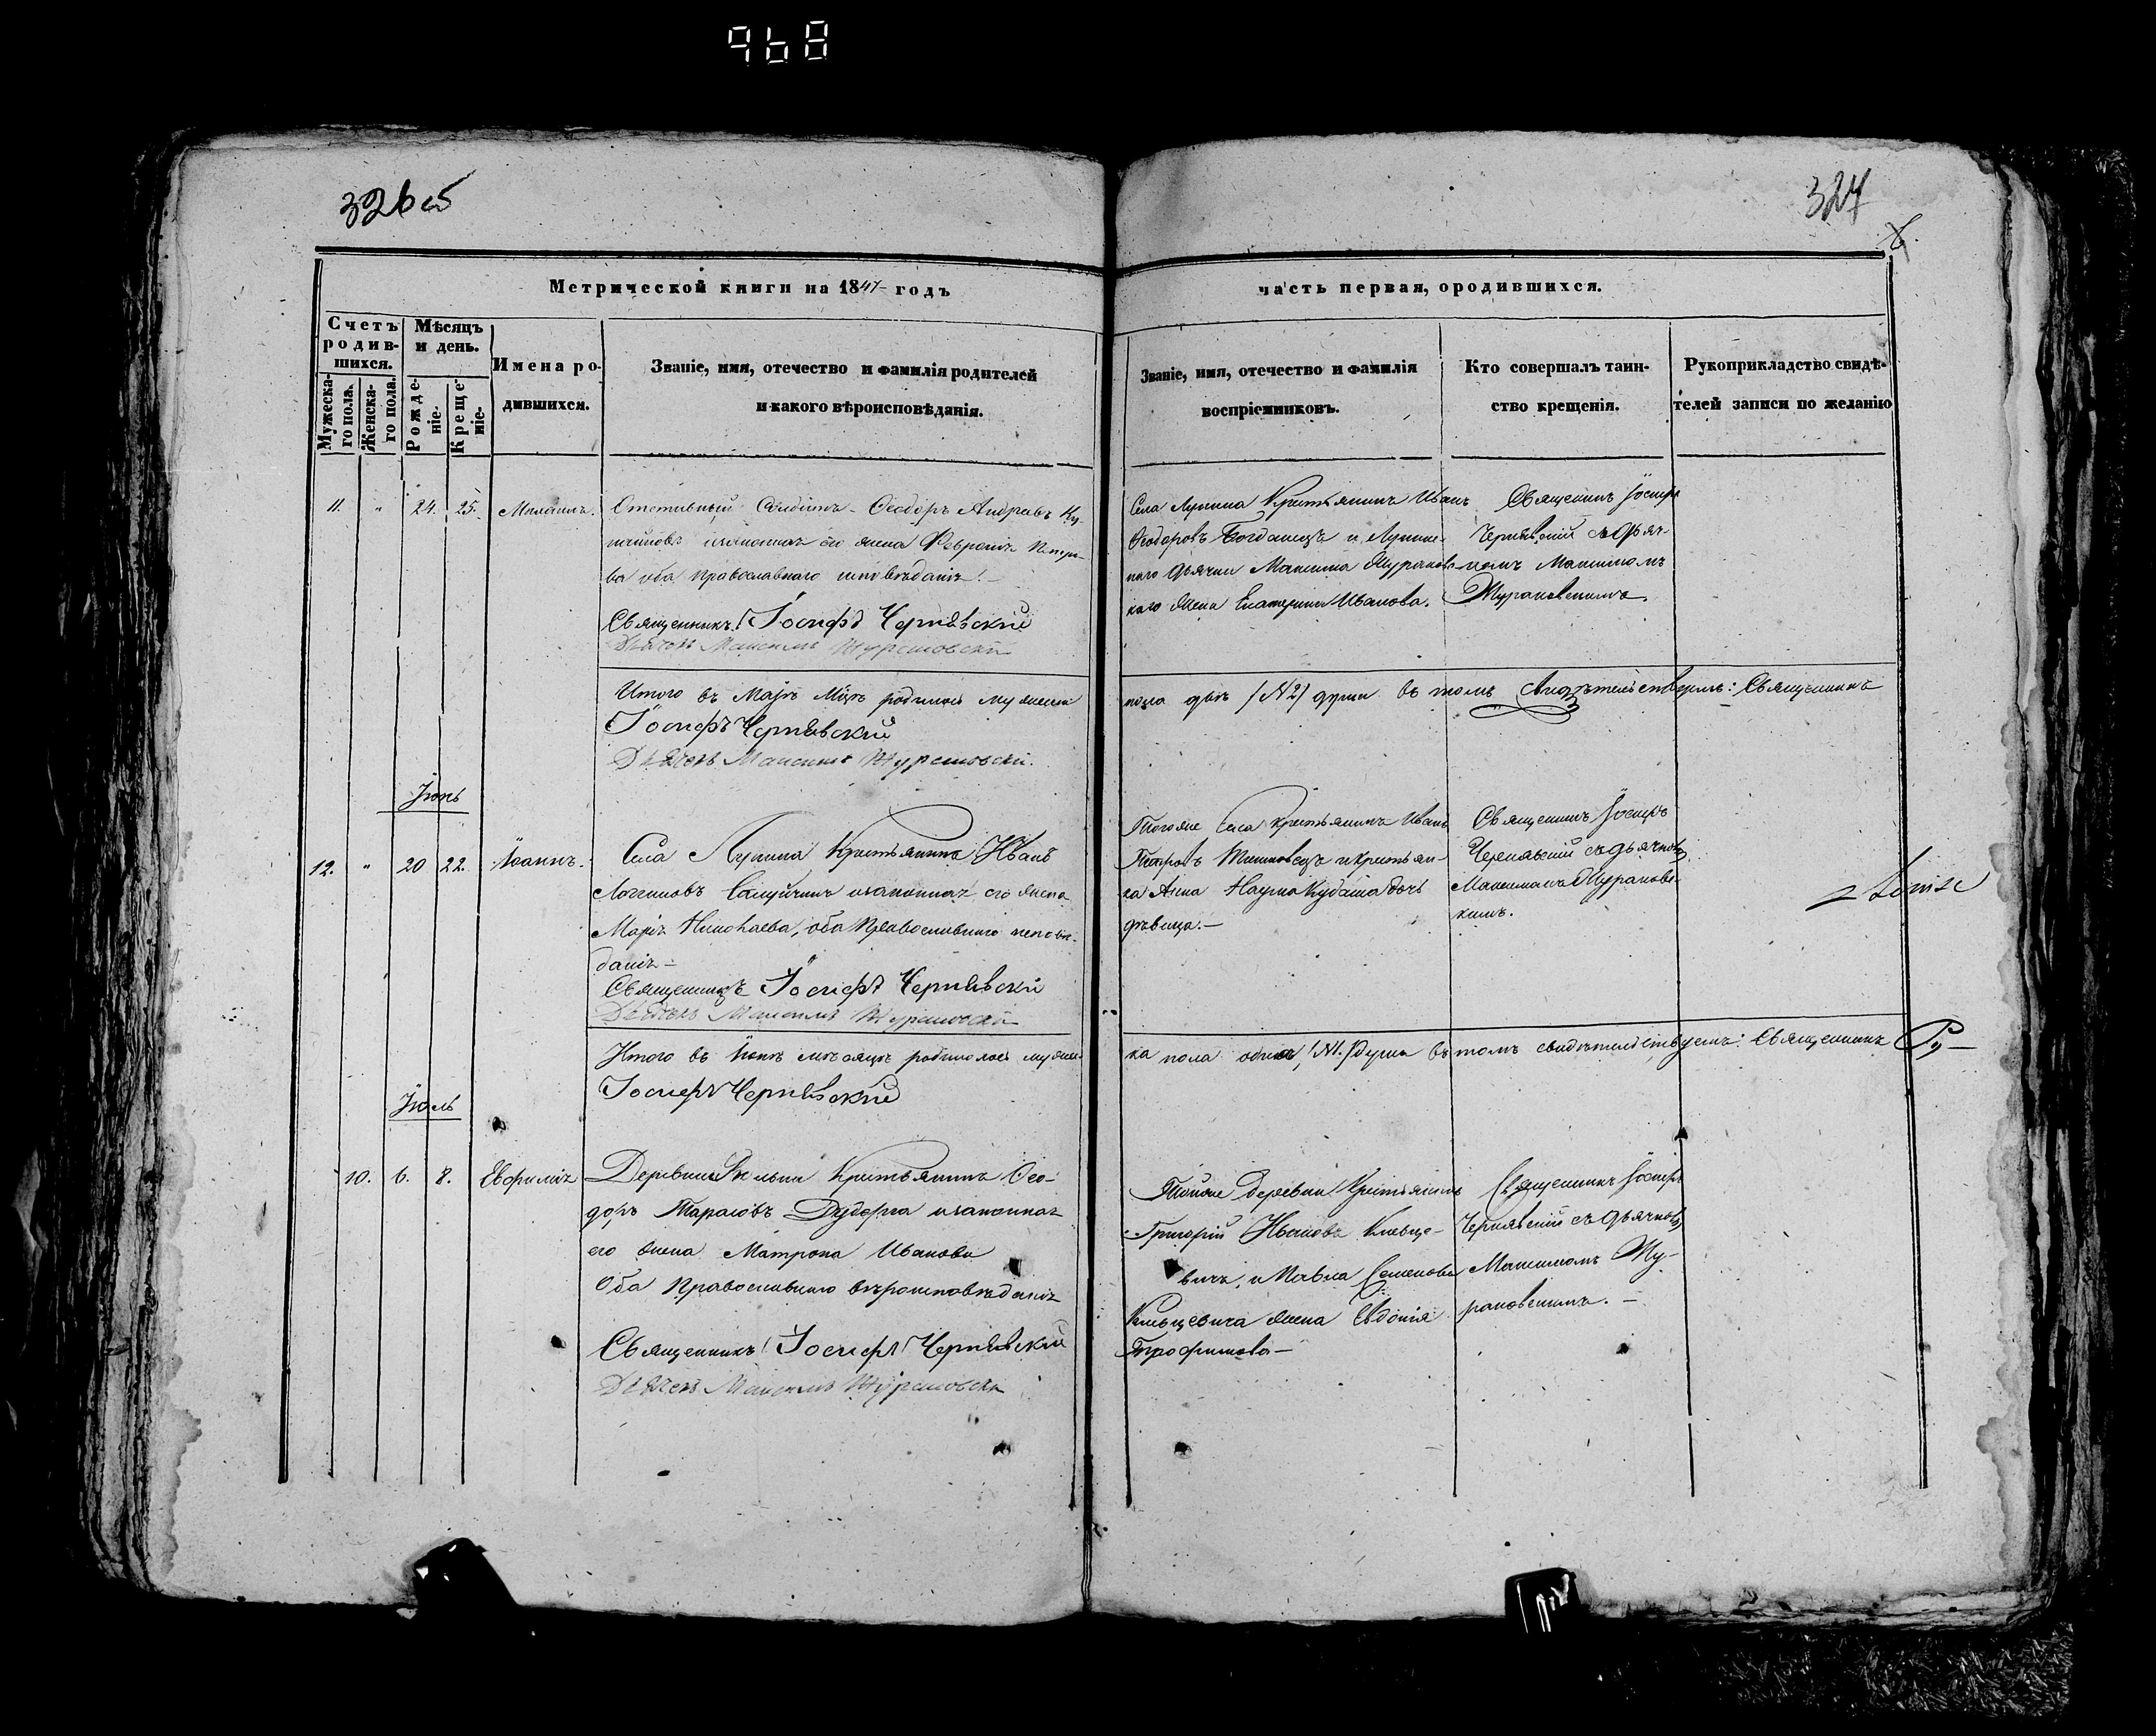 968
326 об
327
Метрической книги на 1847 годъ
часть первая, ородившихся.
Счетъ родив-
шихся.
Мужеска-
го пола.
Женска-
го пола.
Мѣсяцъ
и день.
Рожде-
ніе.
Креще-
ніе.
Имена ро-
дившихся.
Званіе, имя, отечество и фамилія родителей
и какого вѣроисповѣданія.
Званіе, имя, отечество и фамилія
воспріемниковъ.
Кто совершалъ таин-
ство крещенія.
Рукоприкладство свидѣ-
телей записи по желанію
11. " 24. 25.
Отставный Солдатъ Ѳеодоръ Андреевъ
изаконная его жена Февронія
ва оба православнаго исповѣданія.
Священникъ Іосифъ Чернявскій
Дьячекъ Максимъ Жураковскій
Села Лунина Крестьянинъ Иванъ
Ѳеодоровъ Богданецъ и Лунин-
наго дьячка Максима Жураковс-
каго жена Екатерина Иванова.
Священникъ Іосифъ
Чернявскій съ дьяч-
комъ Максимомъ
Жураковскимъ.
Итого въ Маѣ Мцѣ родилось мужеска
пола двѣ /№2/ души въ томъ свидѣтельствуемъ: Священникъ
Іосифъ Чернявскій
Дьячекъ Максимъ Жураковскій.
Іюнь
12. " 20 22. Іоаннъ.
Села Лунина Крестьянинъ Иванъ
Логгиновъ изаконная его жена
Марія Николаева, оба Православнаго исповѣ-
данія —
Священникъ Іосифъ Чернявскій
Дьячекъ Максимъ Жураковскій
Тогоже Села Крестьянинъ Иванъ
и крестьян-
ка Анна Наума Кубаша дочь
дѣвица. —
Священникъ Іосифъ
Чернявскій съ дьячкомъ
Максимомъ Жураковс-
кимъ.
Итого въ Іюнѣ мѣсяцѣ родилось мужес-
ка пола одна /№1./ душа въ томъ свидѣтельствуемъ: Священникъ
Іосифъ Чернявскій
Іюль
10. 6. 8. Евфимія
Деревни Крестьянинъ Ѳео-
доръ Тарасовъ Дуборга изаконная
его жена Матрона Иванова
Оба Православнаго вѣроисповѣданія
Священникъ Іосифъ Чернявскій
Дьячекъ Максимъ Жураковскій
Тойже деревни Крестьянинъ
Григорій Ивановъ Кльеце-
вичъ, и Павла Семенова
Кльецевича жена Евдокія
Трофимова —
Священникъ Іосифъ
Чернявскій съ дьячкомъ
Максимомъ Жу-
раковскимъ. —